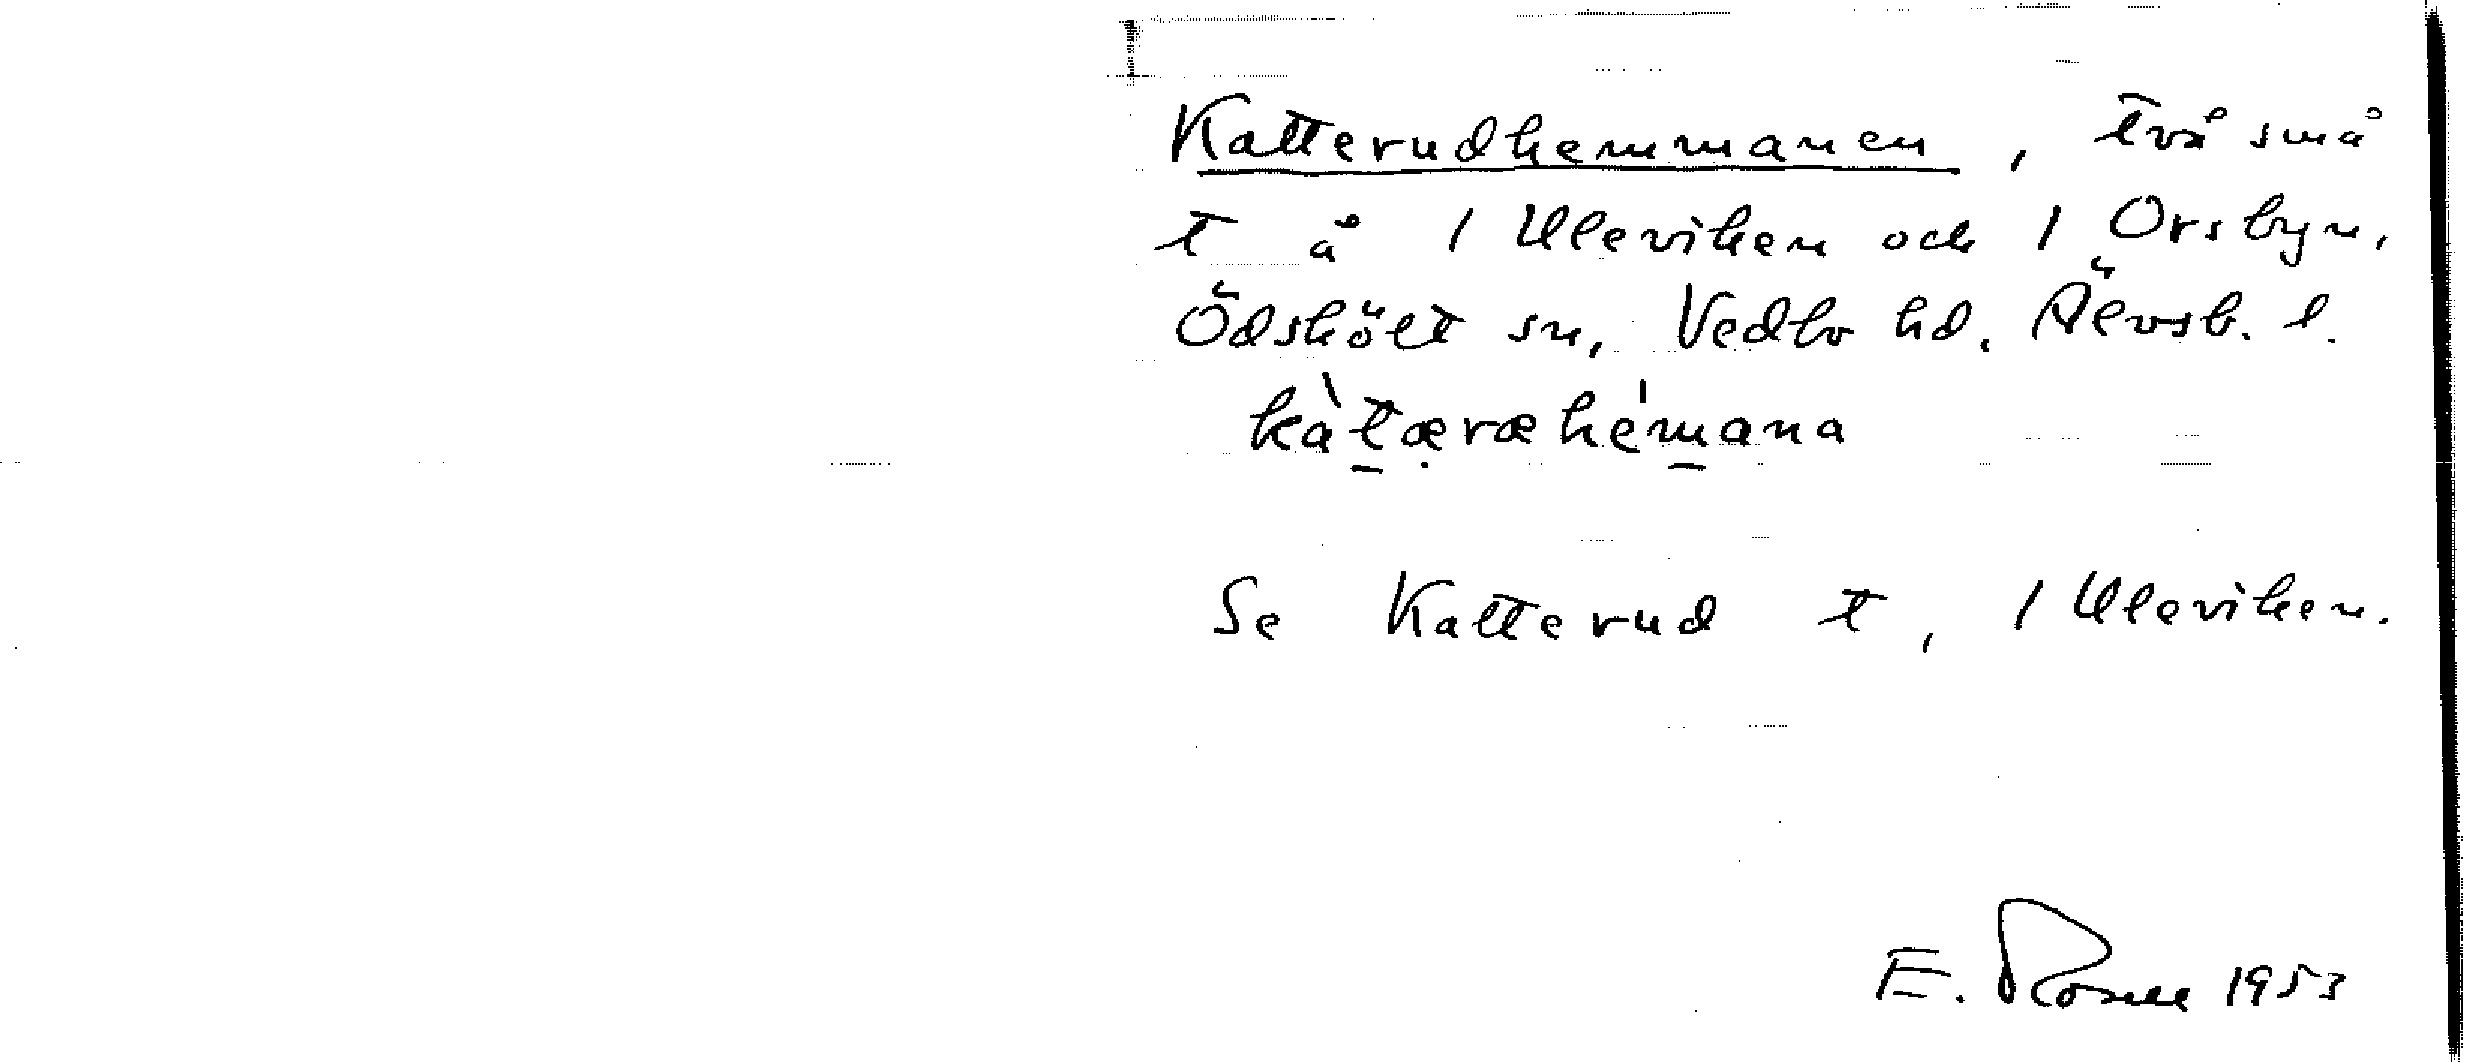 Katterudhemmanen, två små
t å 1 Uleviken och 1 Orsbyn,
Ödskölt sn, Vedbo hd. Älvsb. l.
kàt̠æ̣ræhém̠ana
Se Katterud t, 1 Uleviken.
E. Rosell 1953